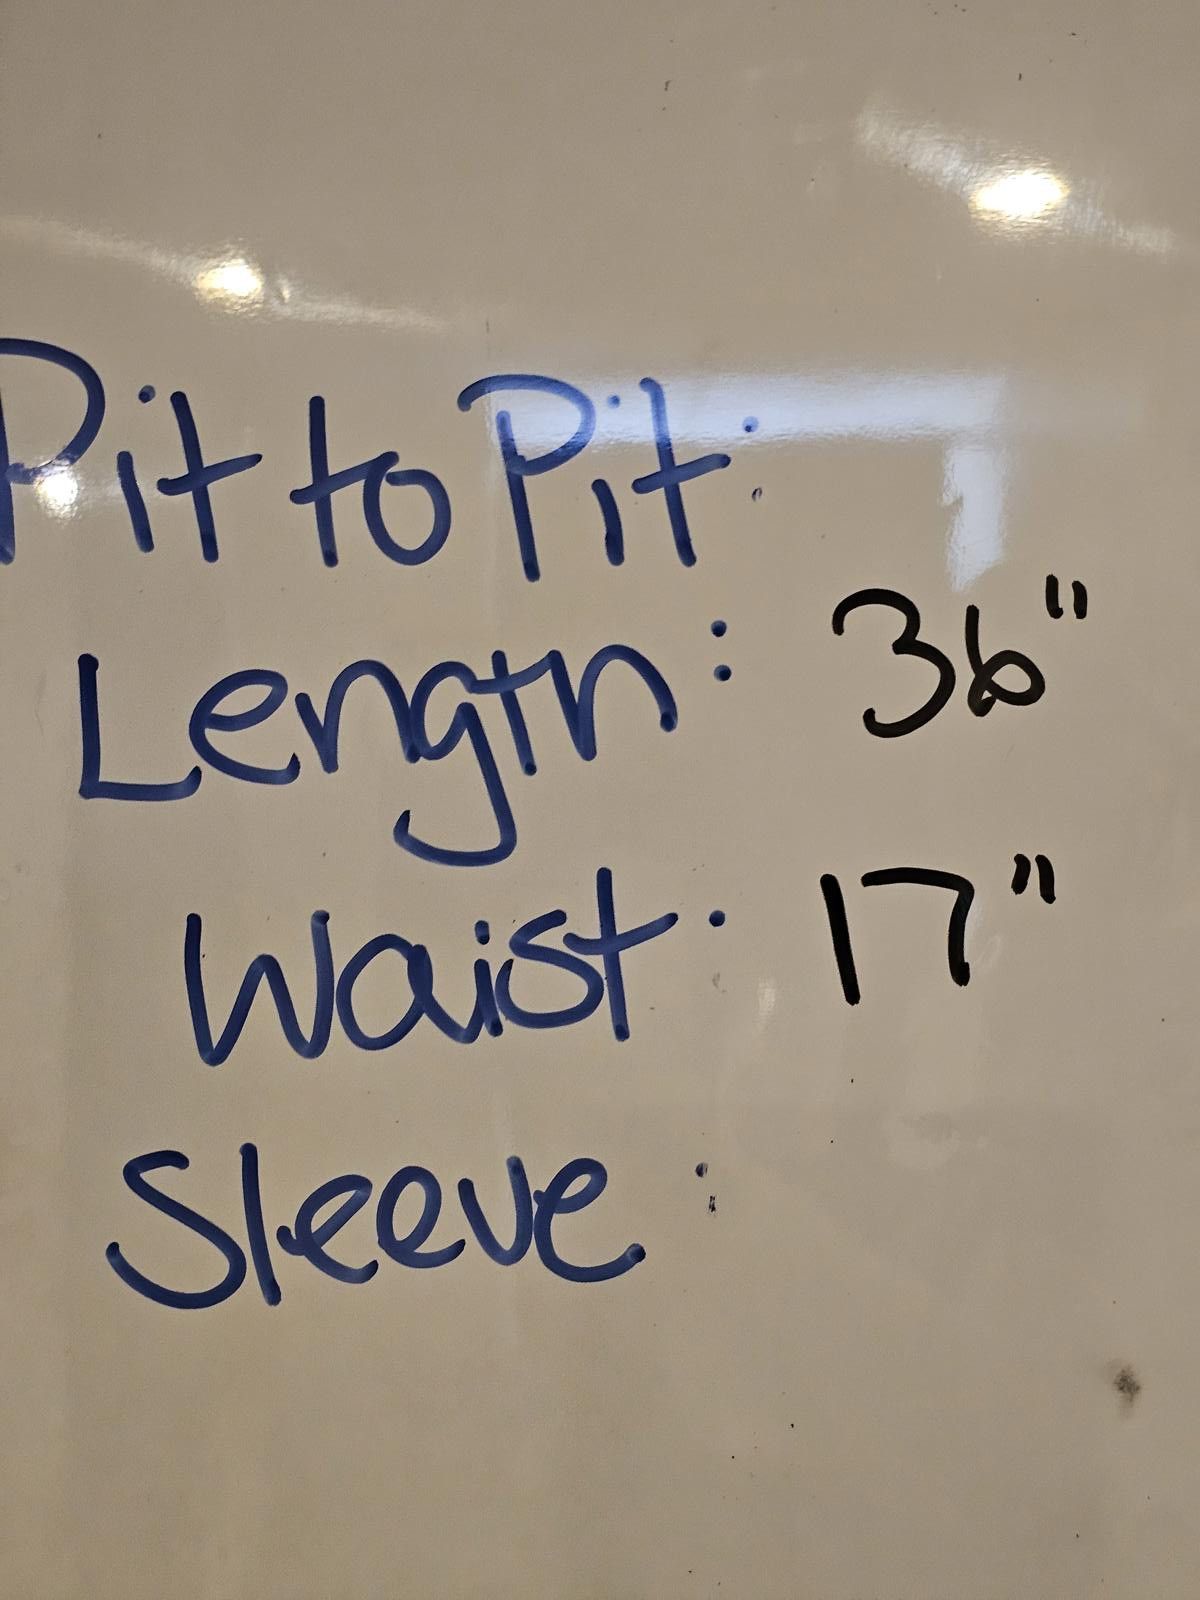 Pit to Pit:
Length: 36"
Waist: 17"
Sleeve: